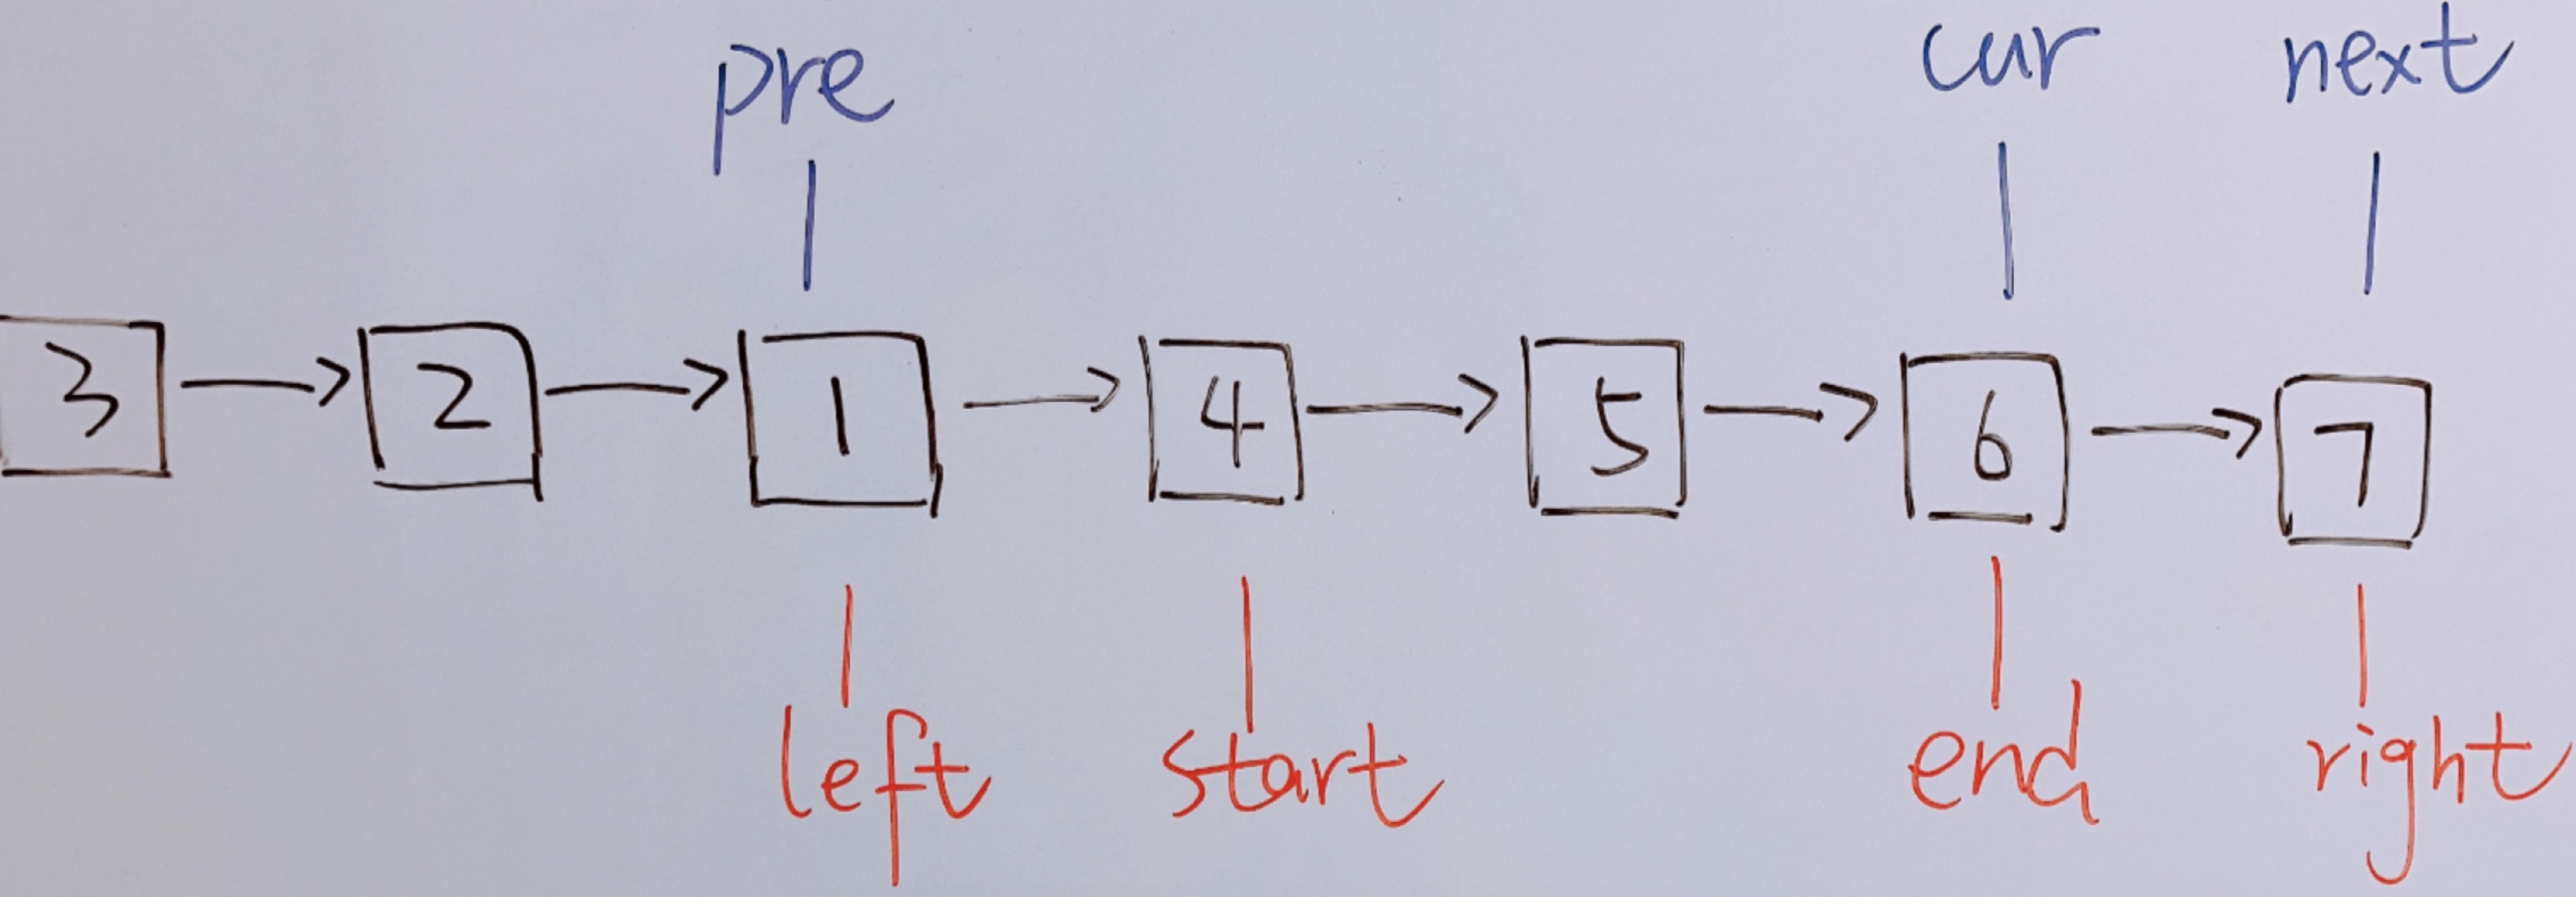 pre cur next
3 → 2 → 1 → 4 → 5 → 6 → 7
left start end right